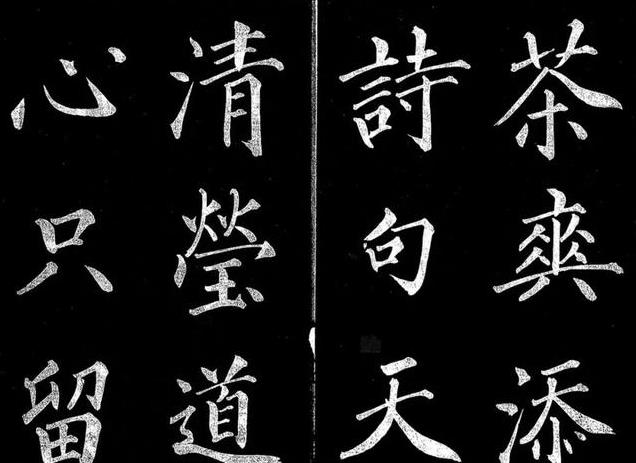 茶爽添
詩句天
清瑩道
心只留